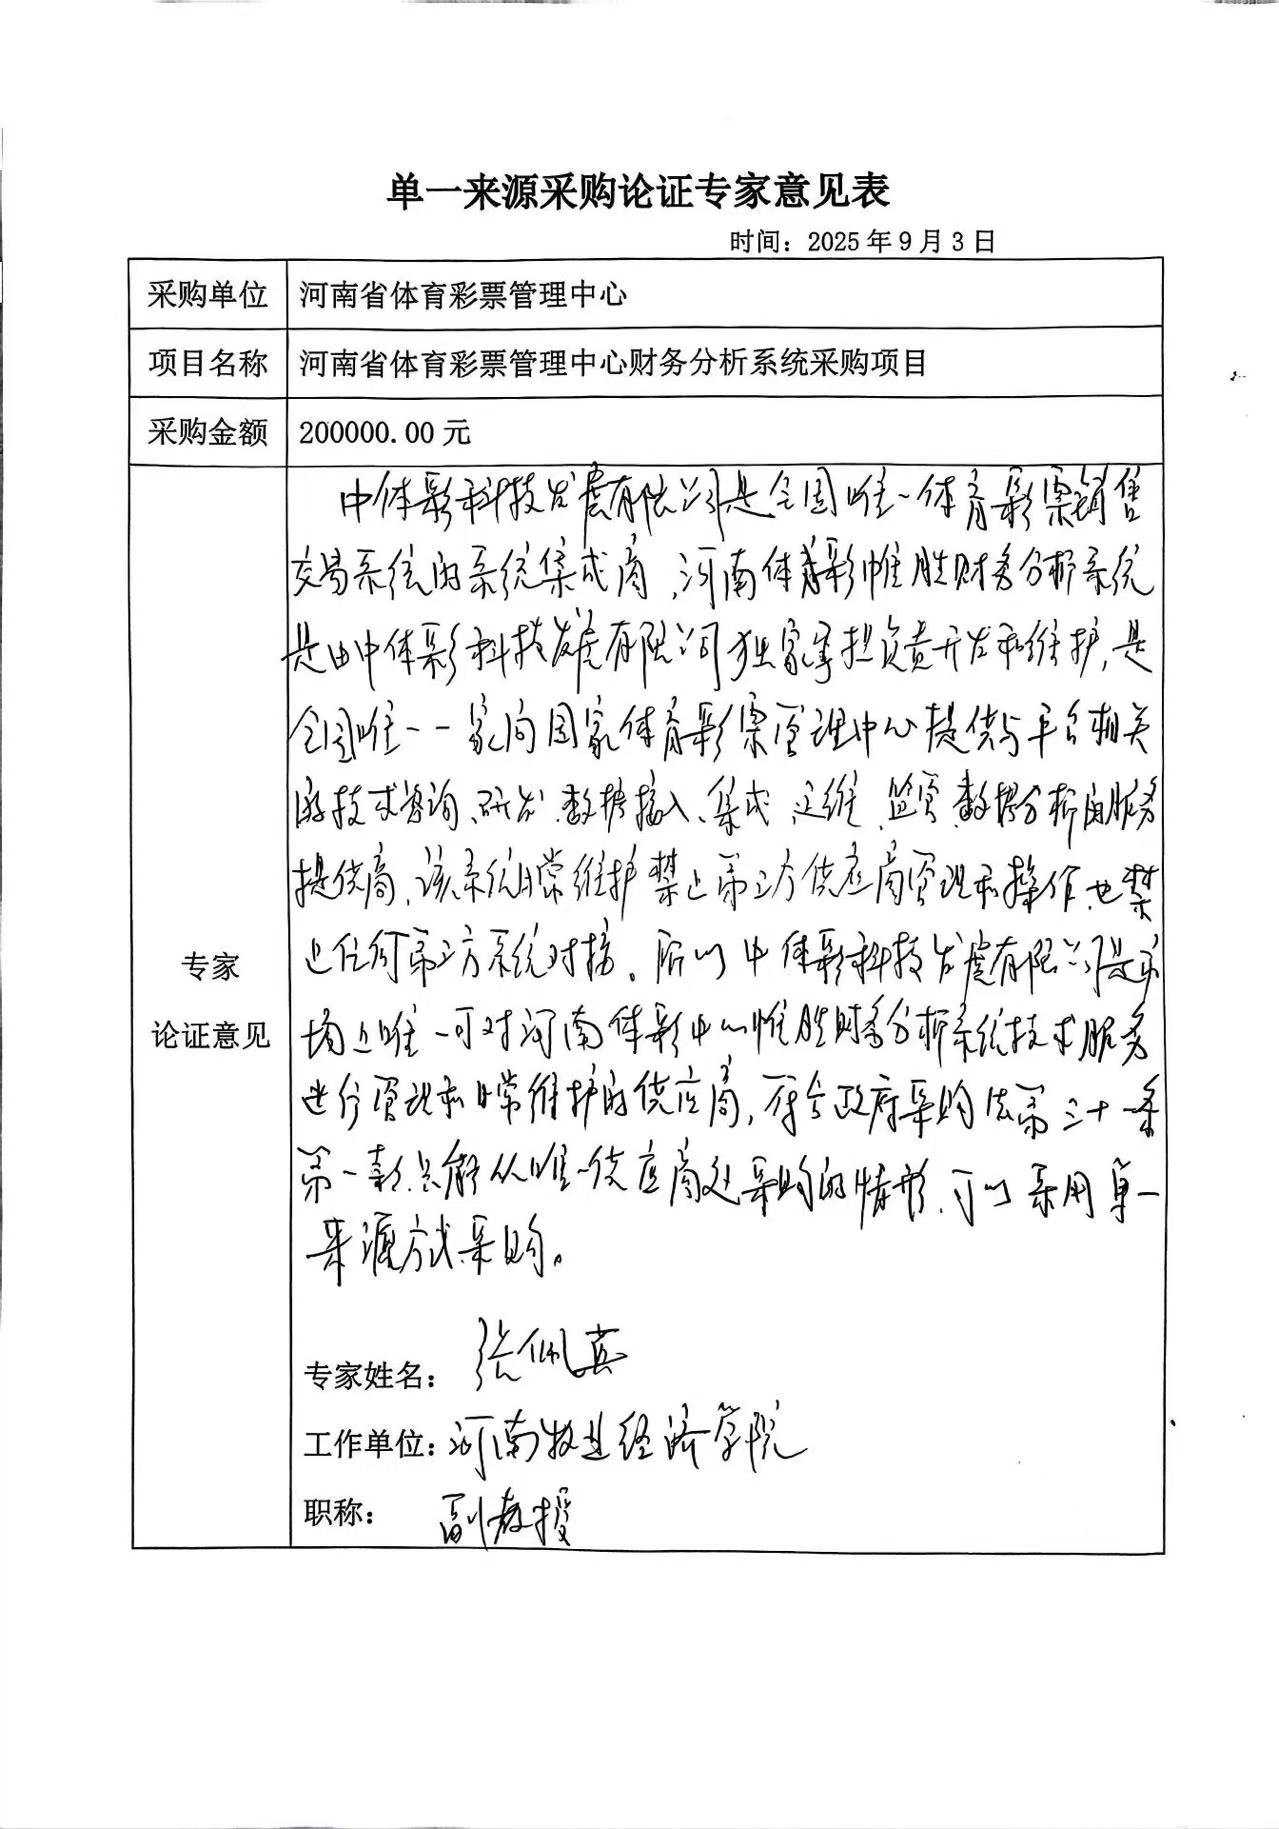 单一来源采购论证专家意见表
时间：2025年9月3日
采购单位 河南省体育彩票管理中心
项目名称 河南省体育彩票管理中心财务分析系统采购项目
采购金额 200000.00元
专家
论证意见
中体彩科技发展有限公司是全国唯一体育彩票销售
交易系统的系统集成商，河南体彩帷胜财务分析系统
是由中体彩科技发展有限公司独家承担负责开发和维护，是
全国唯一一家向国家体育彩票管理中心提供与平台相关
的技术咨询、研发、数据接入、集成、运维、监管、数据分析的服务
提供商，该系统日常维护禁止第三方供应商管理和操作，也禁
止任何第三方系统对接。所以中体彩科技发展有限公司是市
场上唯一可对河南体彩中心帷胜财务分析系统技术服务
进行管理和日常维护的供应商，符合政府采购法第三十一条
第一款只能从唯一供应商处采购的情形，可以采用单一
来源方式采购。
专家姓名：张佩英
工作单位：河南牧业经济学院
职称：副教授